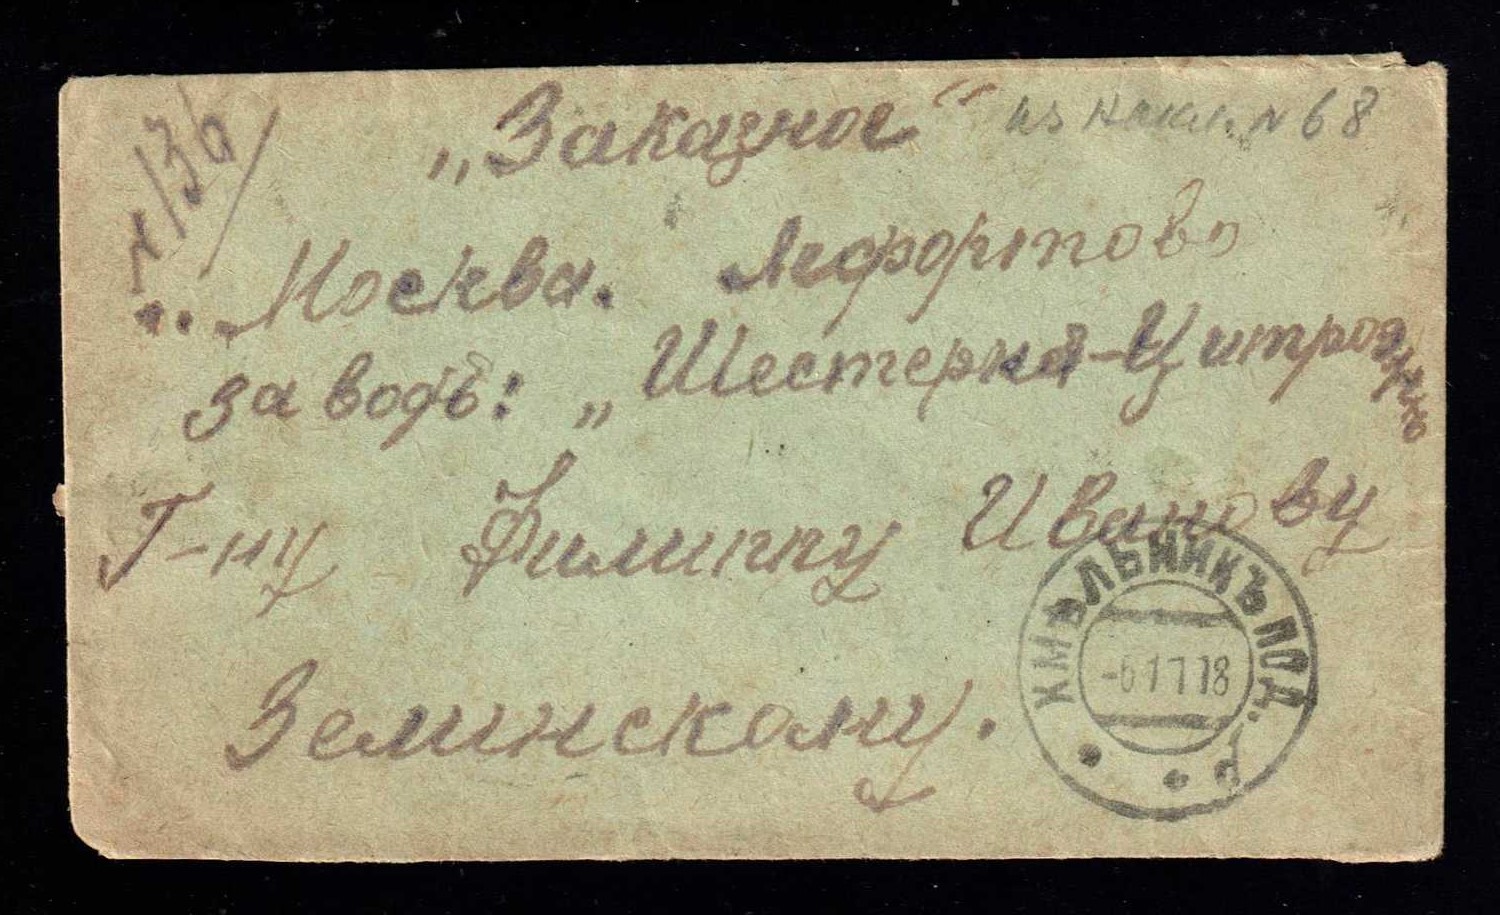 „Заказное“
№ 68
Москва. Лефортово
заводъ: „Шестерня-Цитроэнъ
Г-ну Филиппу Иванову
Зелинскому.
ХМѢЛЬНИКЪ ПОД. Г.
-6 1 1 18